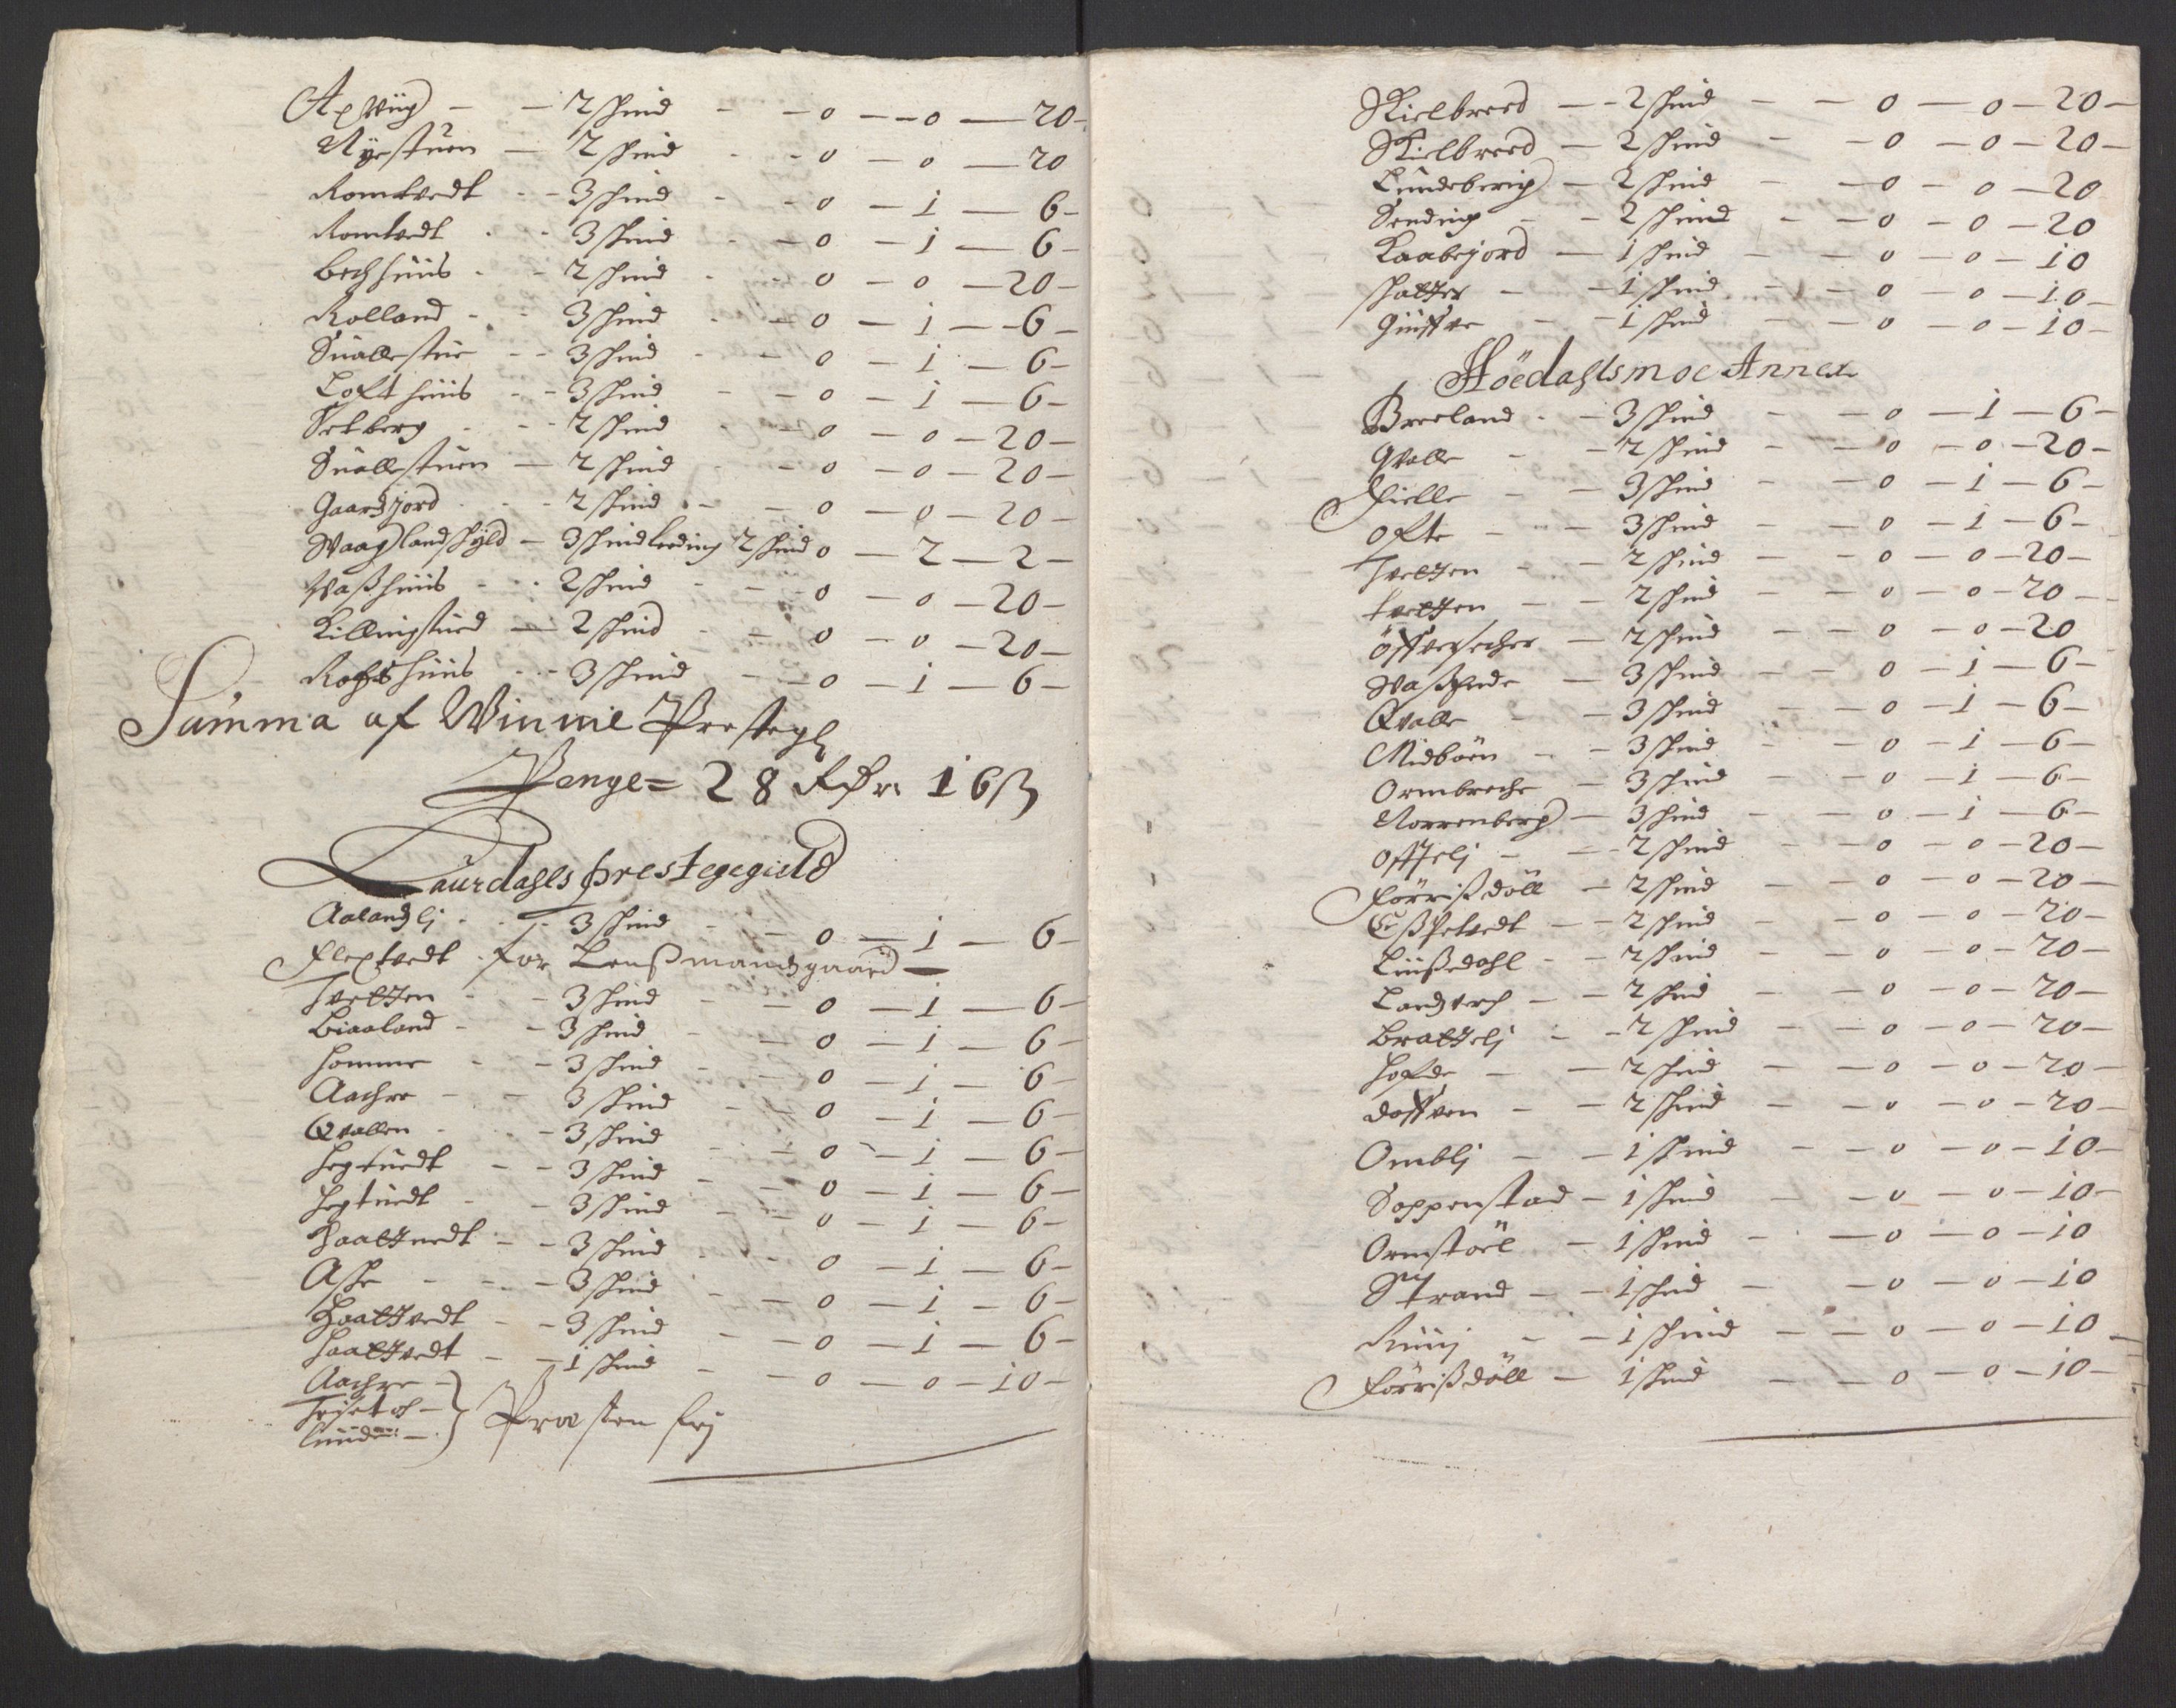 Apwiig - - 2 skind - - 0 - - 0 - 20 -
Nyestuen - 2 skind - - 0 - 0 - 20
Romtvedt - - 3 skind - - 0 - 1 - 6 -
Romtvedt - - 3 skind - - 0 - 1 - 6 -
Bechhuus - - 2 skind - - 0 - 0 - 20 -
Rolland - - 3 skind - - 0 - 1 - 6 -
Suallestue - - 3 skind - - 0 - 1 - 6 -
Lofthuus - - 3 skind - - 0 - 1 - 6 -
Sekberg - - 2 skind - - 0 - 0 - 20 -
Suallestuen - 2 skind - - 0 - 0 - 20 -
Gaardsjord - - 2 skind - - 0 - 0 - 20 -
Waag landskyld - 3 skind leeding 2 skind 0 - 2 - 2 -
Waßhuus - - 2 skind - - 0 - 0 - 20 -
Killingstued - 2 skind - - 0 - 0 - 20 -
Rogshuus - - 3 skind - - 0 - 1 - 6 -
Summa af Winnie Prestegl
Penge = 28 Rdr. 16 ß
Laurdahls prestegegield
Aalandslj - - 3 skind - - 0 - 1 - 6 -
Fleptvedt - for Lenßmandsgaard -
Tvetten - - 3 skind - 0 - 1 - 6 -
Biaaland - - 3 skind - 0 - 1 - 6 -
Homme - - 3 skind - 0 - 1 - 6 -
Aachre - - 3 skind - - 0 - 1 - 6 -
Qvallen - - 3 skind - - 0 - 1 - 6 -
Hegtuedt - - 3 skind - - 0 - 1 - 6 -
Hegtuedt - - 3 skind - - 0 - 1 - 6 -
Haattuedt - - 3 skind - - 0 - 1 - 6 -
Aske - - 3 skind - - 0 - 1 - 6 -
Haattvedt - - 3 skind - - 0 - 1 - 6 -
Haattvedt - - 1 skind - - 0 - 0 - 10 -
Aachre -
Triset och -
Lunden - } Præsten frj
Skielbreed - - 2 skind - - 0 - 0 - 20 -
Skielbreed - 2 skind - - 0 - 0 - 20 -
Lundeberig - 2 skind - - 0 - 0 - 20
Sending - - 2 skind - - 0 - 0 - 20
Kaabejord - 1 skind - - 0 - 0 - 10
Skatter - - 1 skind - - 0 - 0 - 10 -
Giuffve - - 1 skind - - 0 - 0 - 10 -
Höedahlsmoe Annex
Breeland - - 3 skind - - 0 - 1 - 6 -
Qvalle - - 2 skind - - 0 - 0 - 20 -
Fielle - - 3 skind - - 0 - 1 - 6 -
Ofte - - 3 skind - - 0 - 1 - 6 -
Tvetten - - 2 skind - - 0 - 0 - 20 -
Tvetten - - 2 skind - - 0 - 0 - 20 -
Öffversecher - 2 skind - - 0 - 0 - 20
Waßende - 3 skind - - 0 - 1 - 6 -
Qvalle - - 3 skind - - 0 - 1 - 6 -
Midböen - - 3 skind - - 0 - 1 - 6 -
Ormbreche - 3 skind - - 0 - 1 - 6 -
Norrenberg - 3 skind - - 0 - 1 - 6 -
Offtelj - - 2 skind - - 0 - 0 - 20 -
Förrißdall - 2 skind - - 0 - 0 - 20 -
Eßpetvedt - - 2 skind - - 0 - 0 - 20 -
Liußedahl - - 2 skind - - 0 - 0 - 20 -
Landsverch - - 2 skind - - 0 - 0 - 20 -
Brattelj - - 2 skind - - 0 - 0 - 20 -
Hofde - - 2 skind - - 0 - 0 - 20 -
Daffven - - 2 skind - - 0 - 0 - 20 -
Omblj - - 1 skind - - 0 - 0 - 10 -
Soppenstad - 1 skind - - 0 - 0 - 10 -
Ormstöel - 1 skind - - 0 - 0 - 10
Strand - - 1 skind - - 0 - 0 - 10
Ruuj - - 1 skind - - 0 - 0 - 10
Förrißdall - 1 skind - - 0 - 0 - 10 -